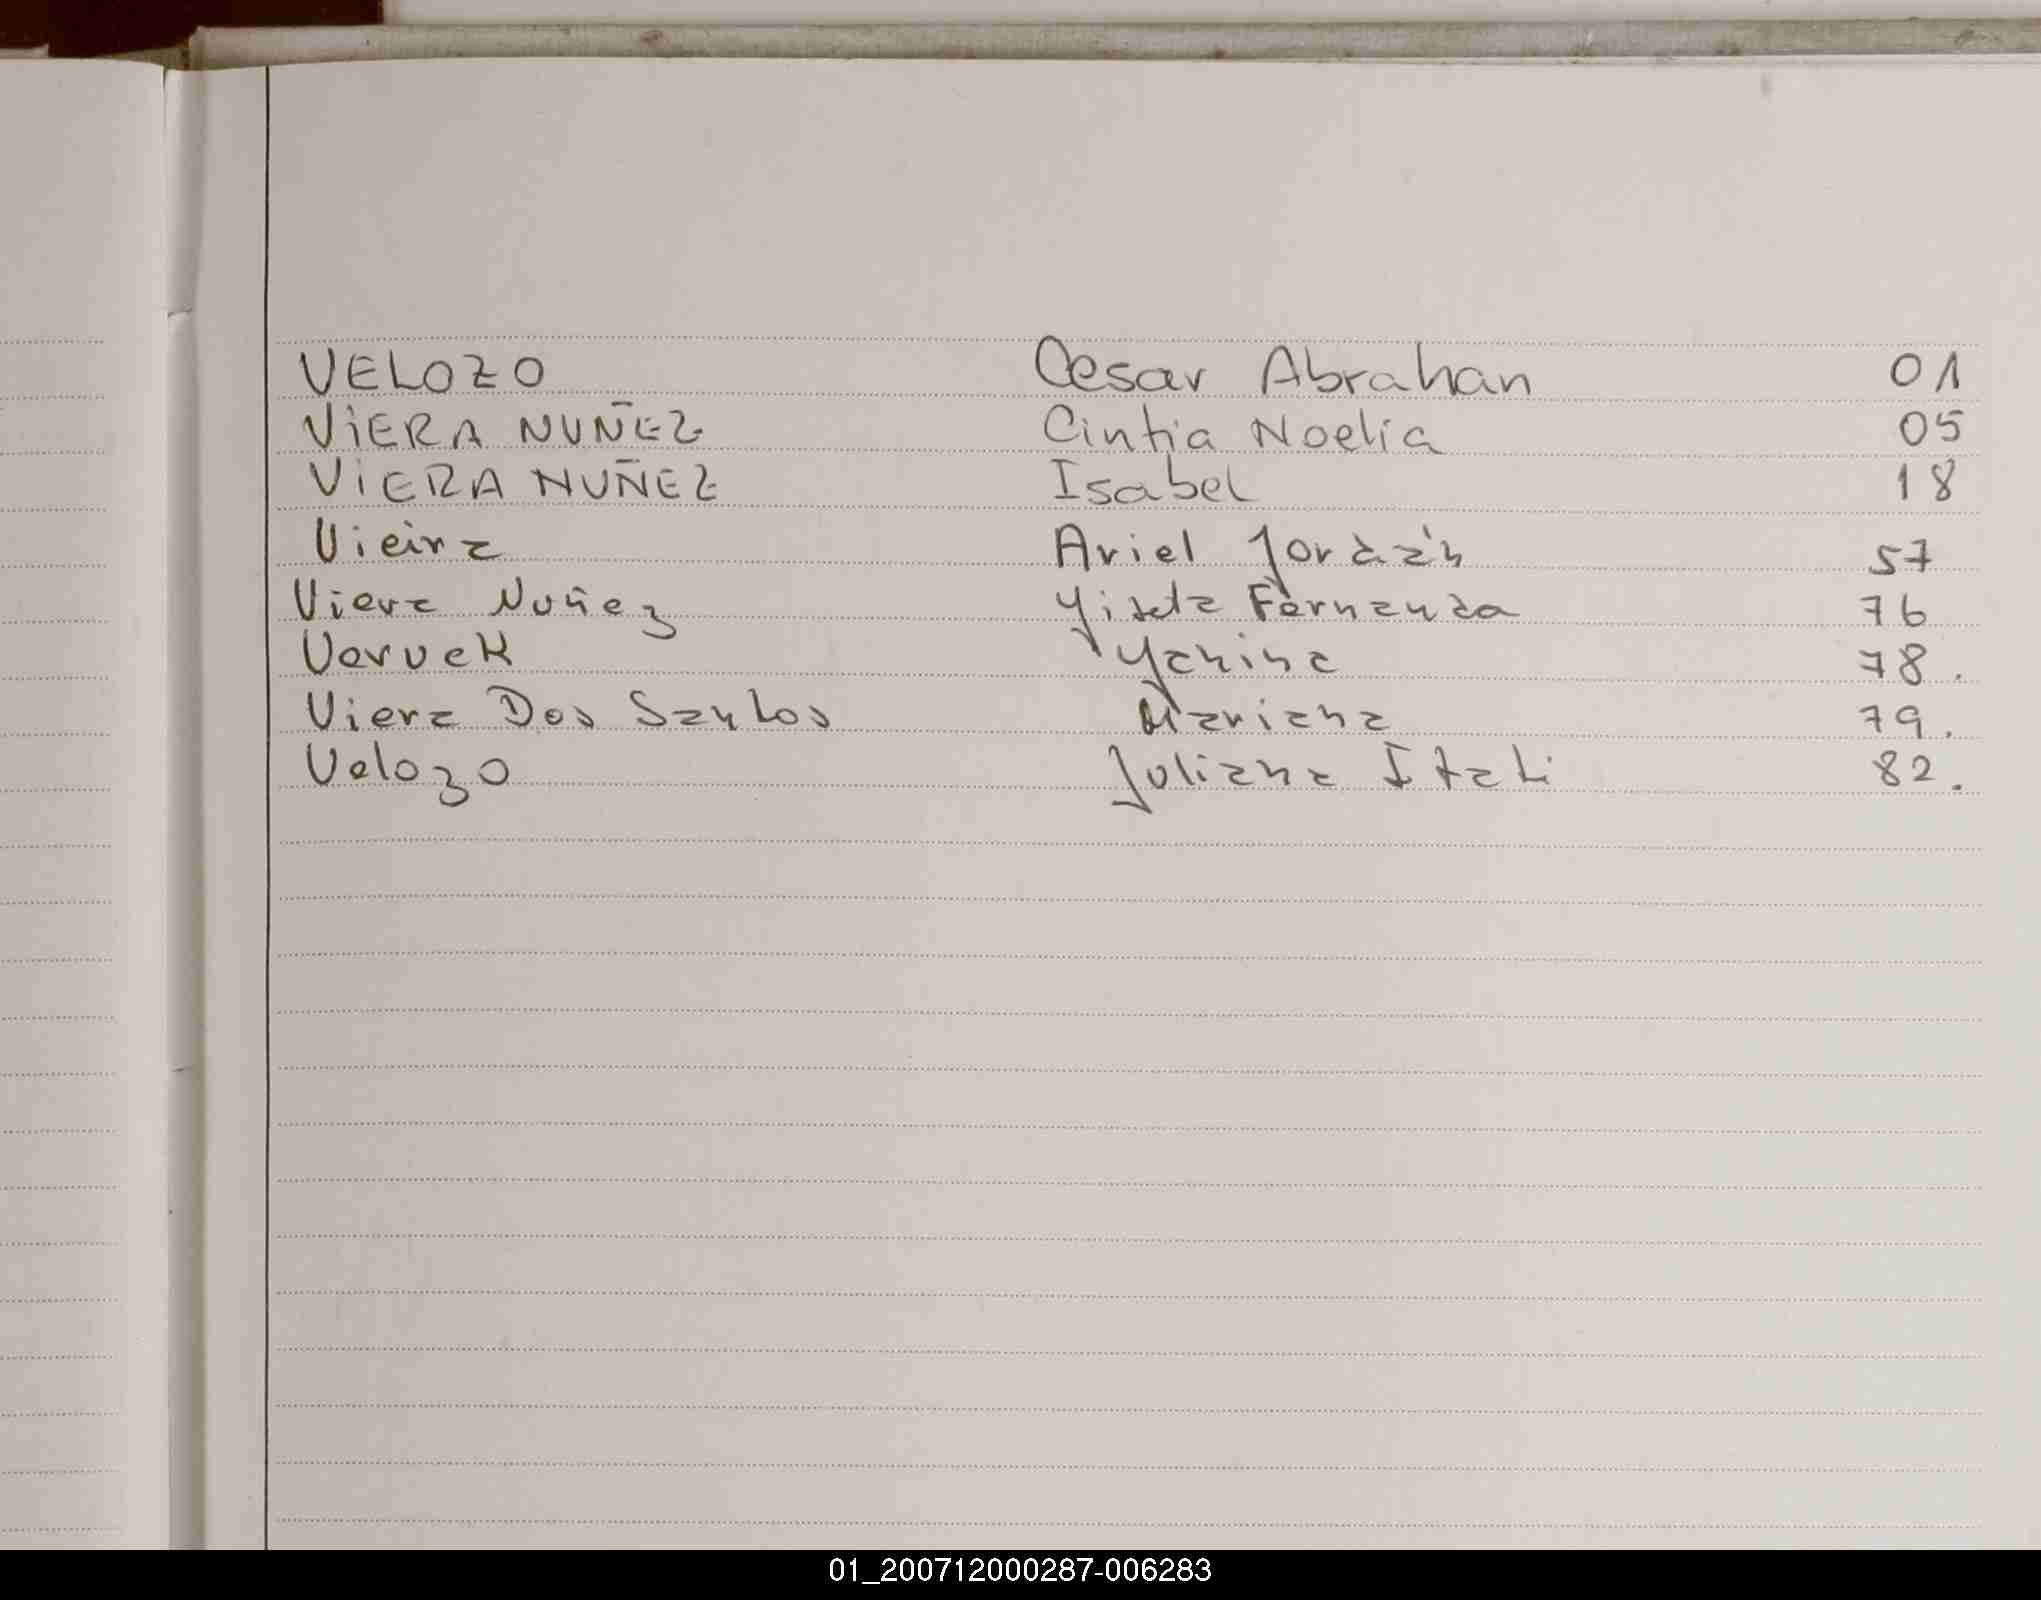 VELOZO Cesar Abrahan 01
ViERA NUÑEZ Cintia Noelia 05
ViERA NUÑEZ Isabel 18
Vieira Ariel Jordán 57
Viera Nuñez Yisela Fernanda 76
Vervek Yanina 78.
Viera Dos Santos Mariana 79.
Velozo Juliana Itati 82.
01_200712000287-006283